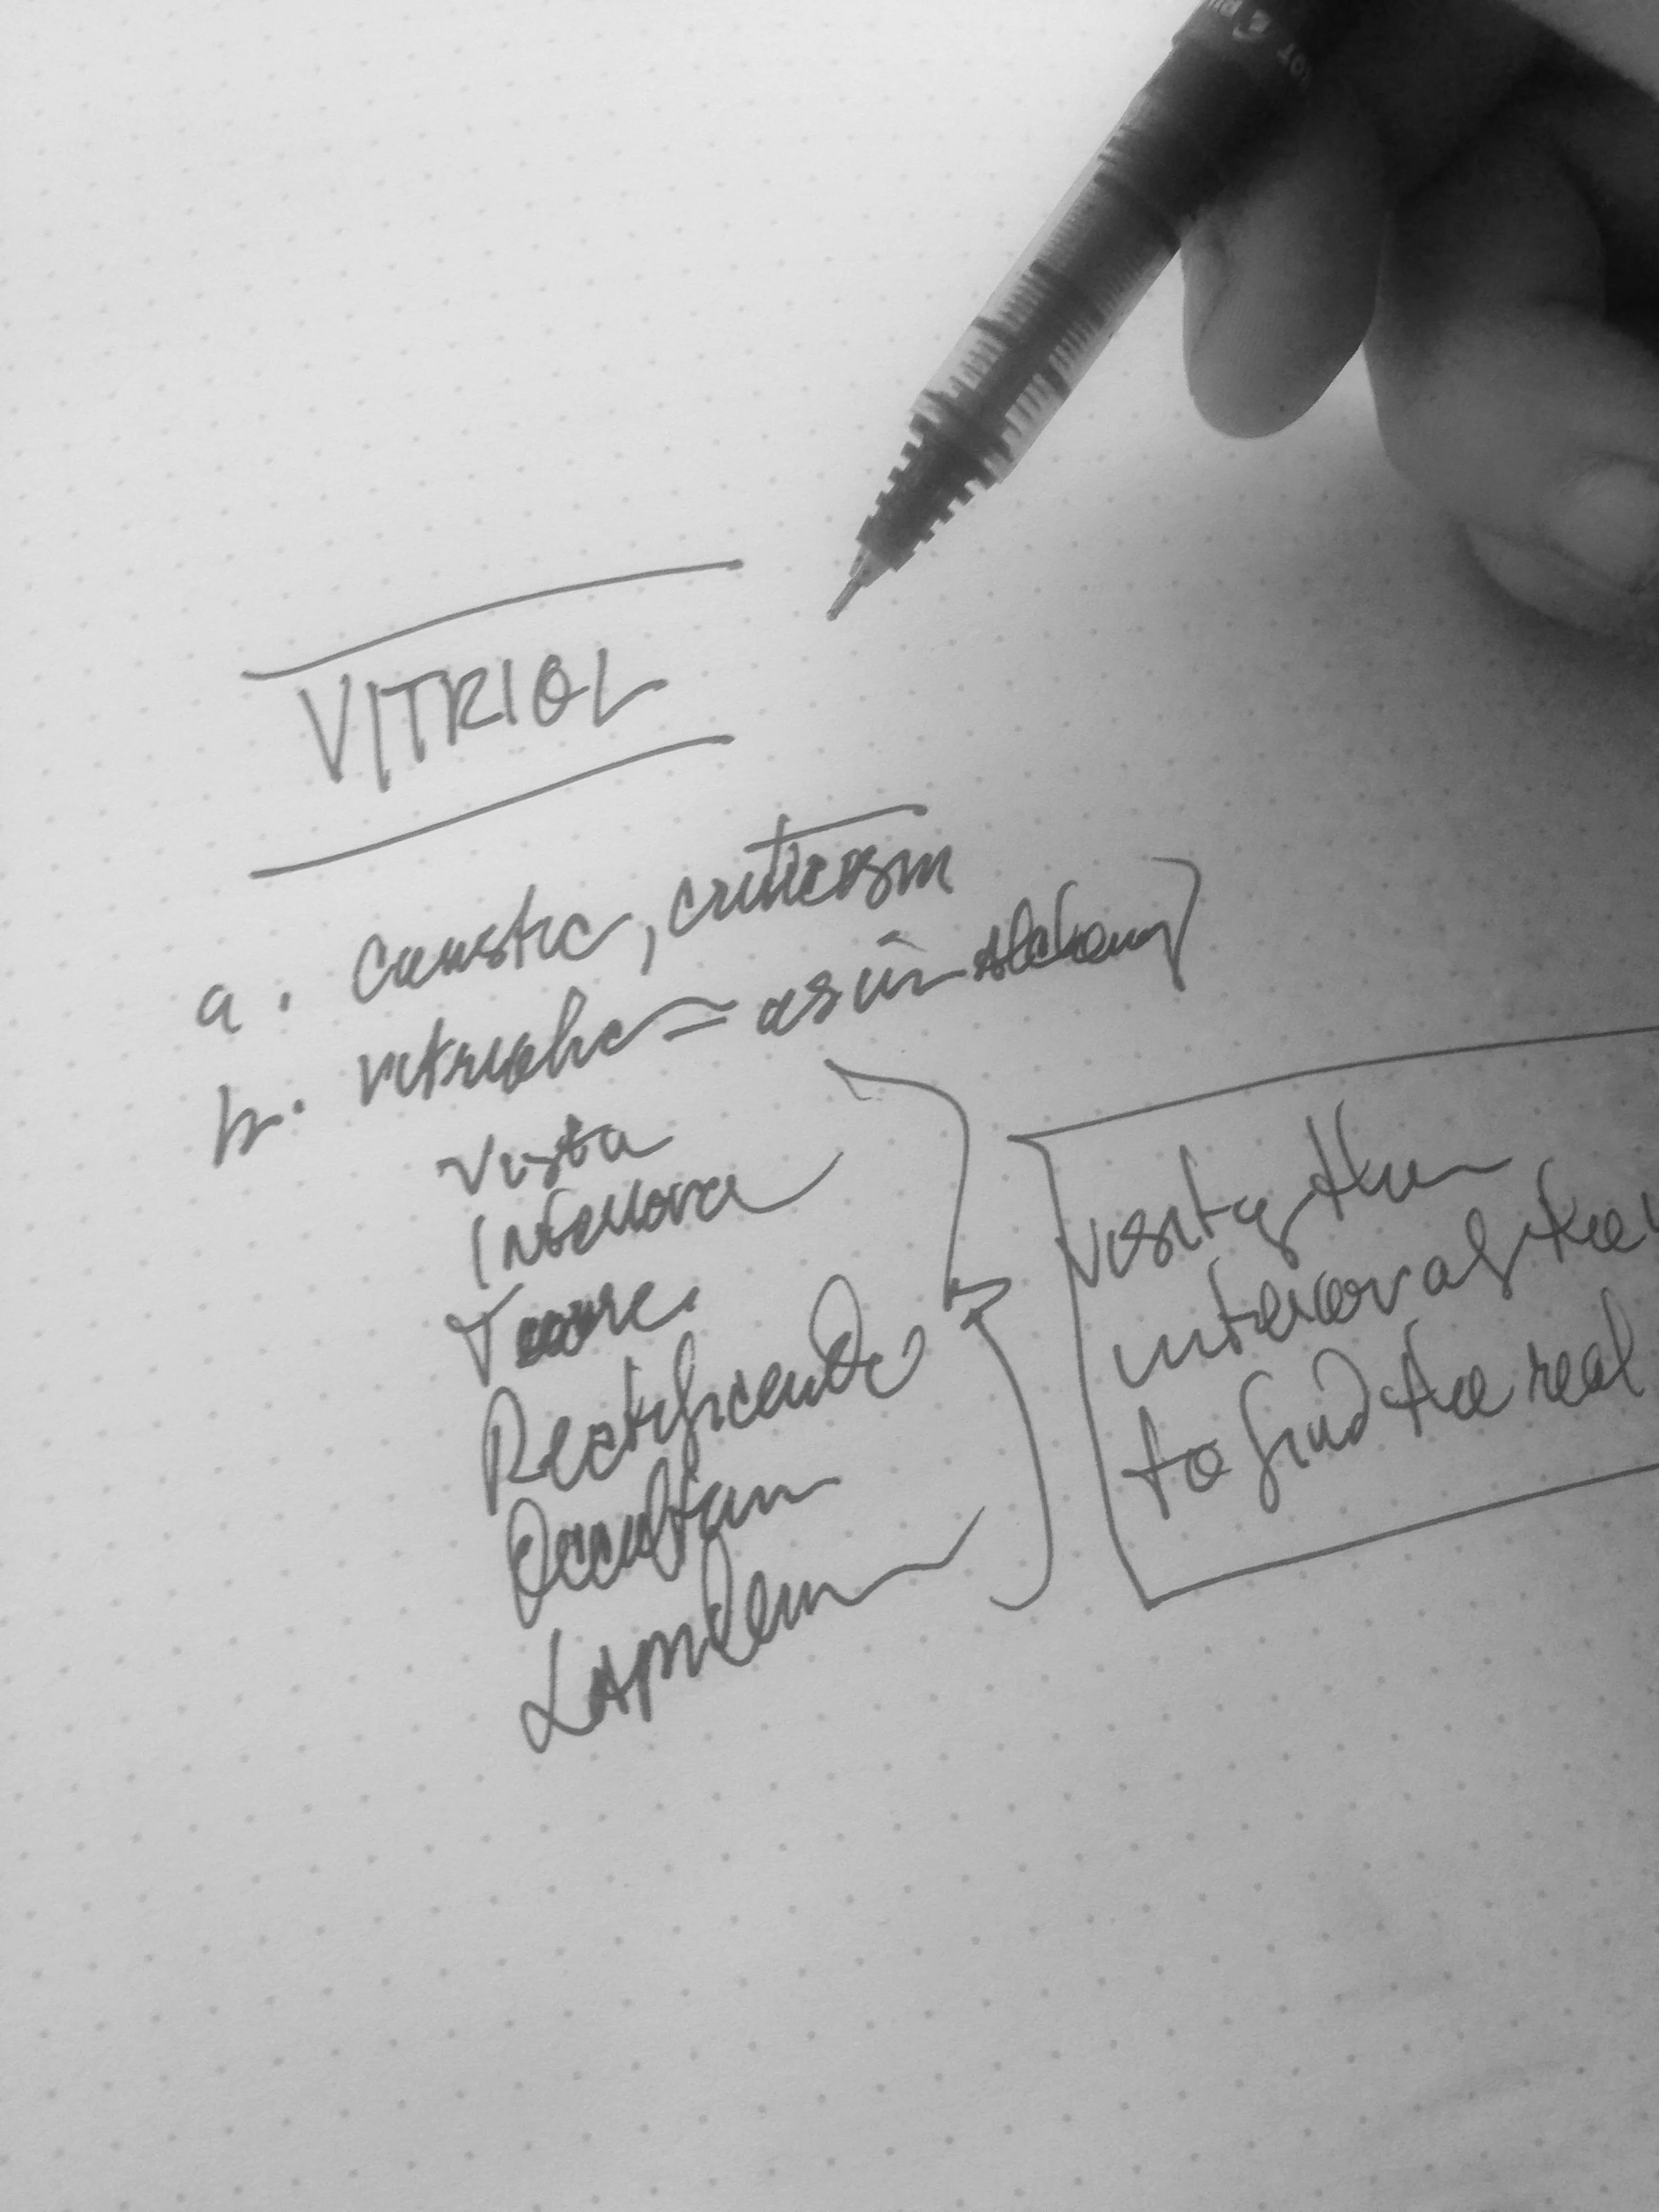 VITRIOL
a. caustic, criticism
b. vitriolic = as in Alchemy
Vista
Interiora
Terrae
Rectificando
Occultam
Lapidem
Visiting the
interior of the
to find the real